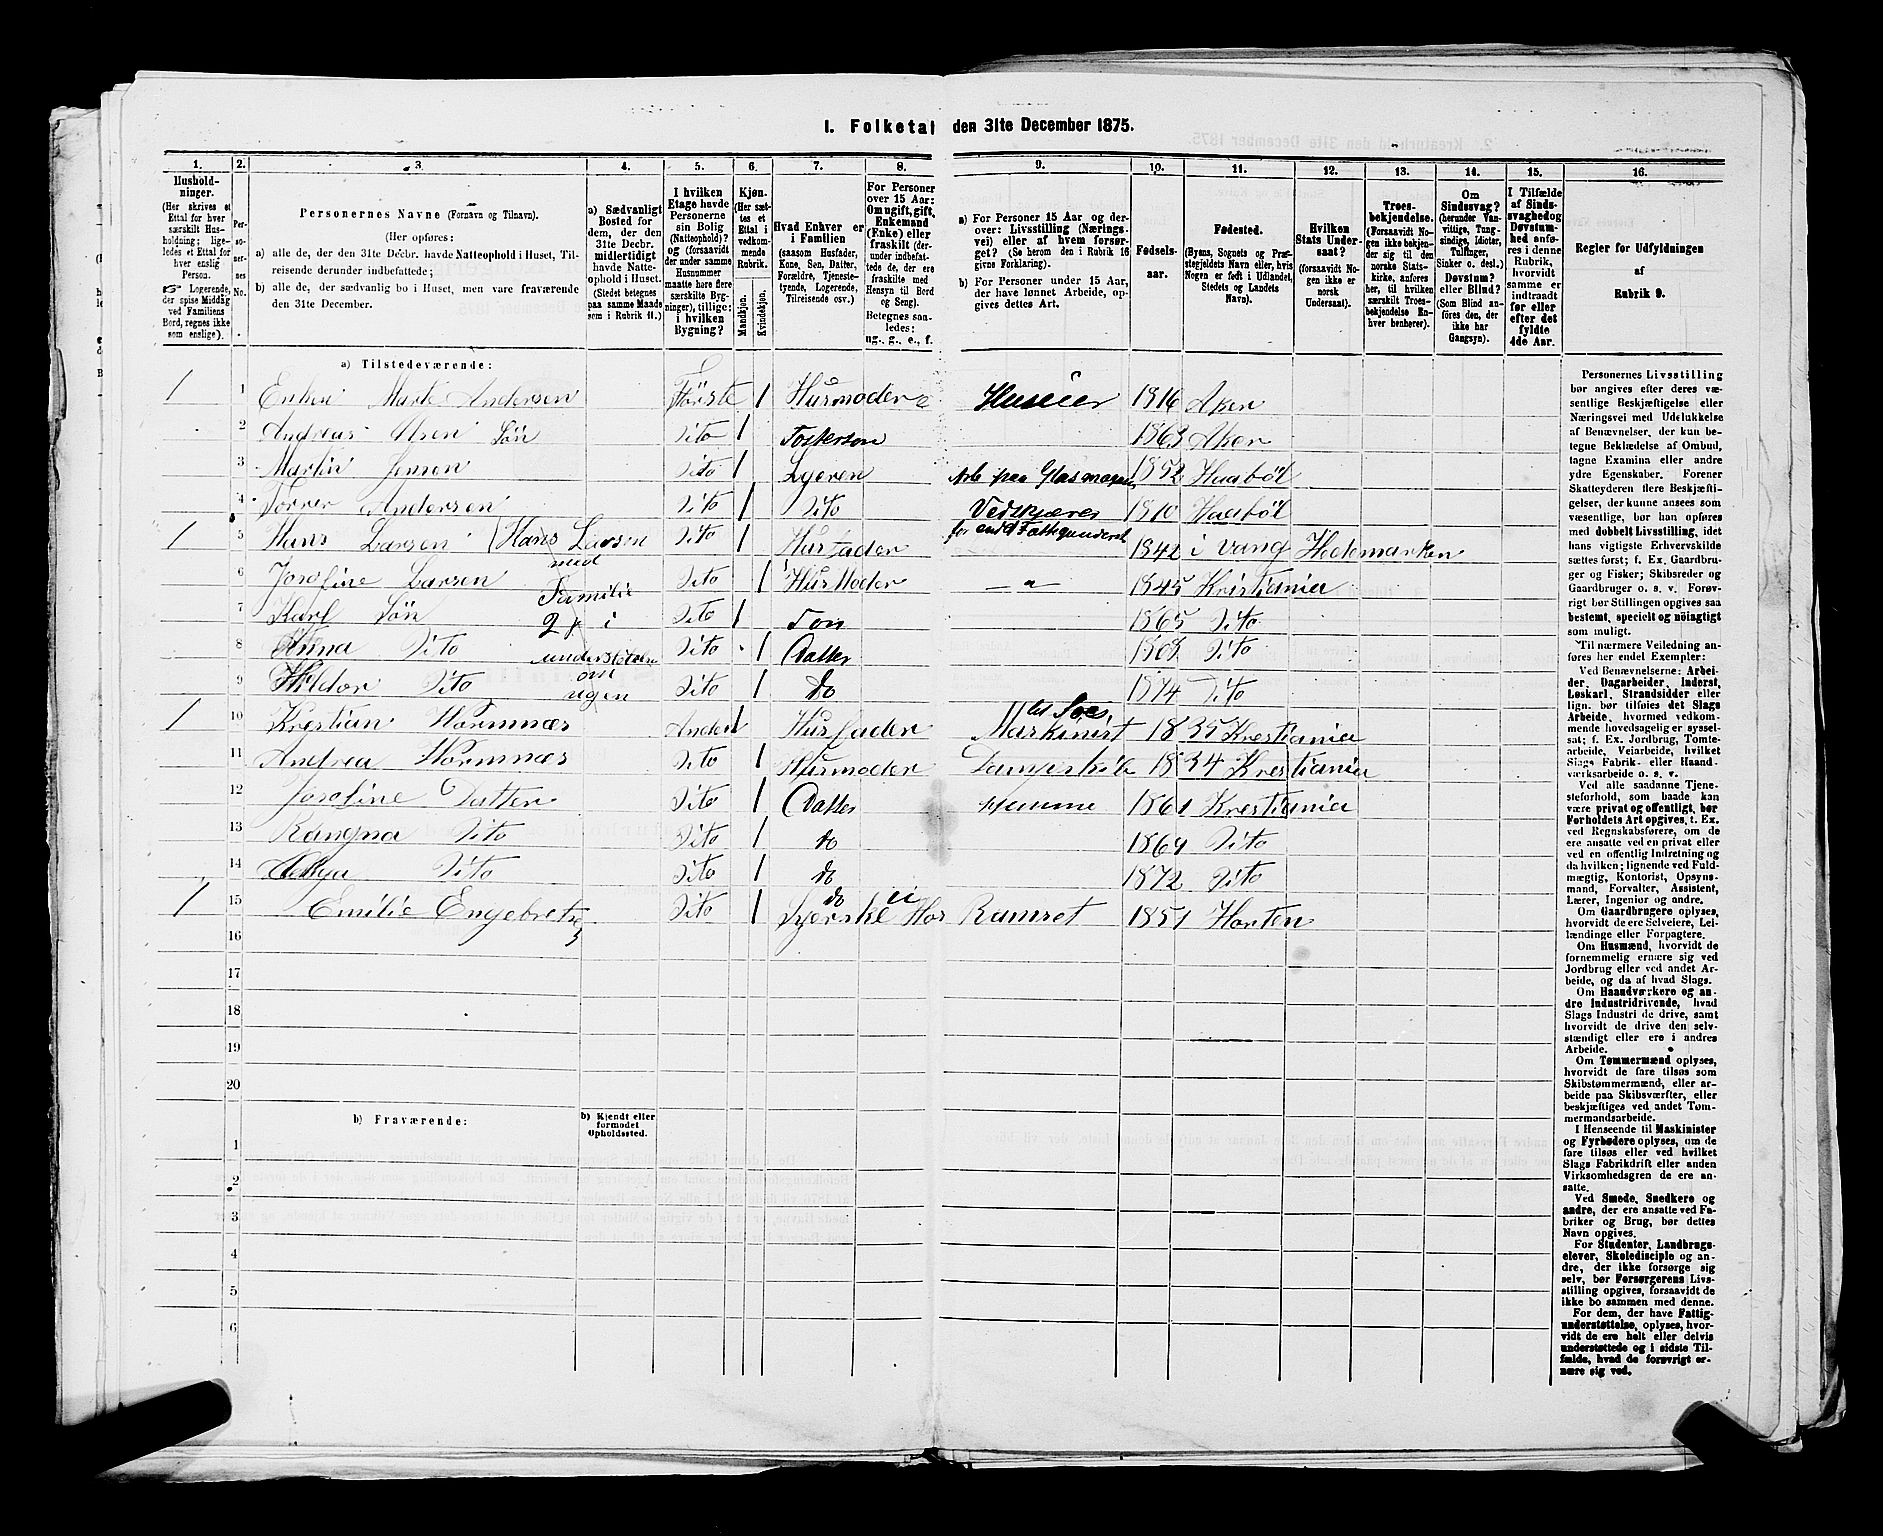 I. Folketal den 31te December 1875.
1. 2. 3. 4. 5. 6. 7. 8. 9. 10. 11. 12. 13. 14. 15. 16.
Husholdninger.
(Her skrives et
Ettal for hver
særskilt Husholdning;
ligeledes et Ettal for
enslig
Person.
☞ Logerende,
der spise Middag
ved Familiens
Bord, regnes ikke
som enslige).
Personernes No.
Personernes Navne (Fornavn og Tilnavn).
(Her opføres:
a) alle de, der den 31te Decbr. havde Natteophold i Huset, Tilreisende derunder indbefattede;
b) alle de, der sædvanlig bo i Huset, men vare fraværende
den 31te December.
a) Sædvanligt
Bosted for
dem, der den
31te Decbr.
midlertidigt
havde Natteophold i Huset.
(Stedet betegnes
paa samme Maade
som i Rubrik 11.)
I hvilken
Etage havde
Personerne
sin Bolig
(Natteophold)?
og (forsaavidt
der under samme
Husnummer
maatte høre flere
særskilte Bygninger), tillige:
i hvilken
Bygning?
Kjøn.
(Her sættes et
Ettal i
vedkommende
Rubrik.
Mandkjøn.
Kvindekjøn.
Hvad Enhver er
i Familien
(saasom Husfader,
Kone, Søn, Datter,
Forældre, Tjenestetyende, Logerende,
Tilreisende osv.)
For Personer
over 15 Aar:
Om ugift, gift,
Enkemand
(Enke) eller
fraskilt (derunder indbefattede de, der ere
fraskilte med
Hensyn til Bord
og Seng).
Betegnes saaledes:
ug., g., e., f.
a) For Personer 15 Aar og derover: Livsstilling (Næringsvei) eller af hvem forsørget? (Se herom den i Rubrik 16
givne Forklaring).
b) For Personer under 15 Aar,
der have lønnet Arbeide, opgives dettes Art.
Fødselsaar.
Fødested.
(Byens, Sognets og Præstegjeldets Navn eller, hvis
Nogen er født i Udlandet,
Stedets og Landets
Navn).
Hvilken
Stats Undersaat?
(forsaavidt Nogen ikke er
norsk
Undersaat).
Troesbekjendelse.
(Forsaavidt Nogen ikke bekjender sig til den
norske Statskirke, anføres
her, til hvilken
særskilt Troesbekjendelse Enhver henhører).
Om
Sindssvag?
(herunder Vanvittige, Tungsindige, Idioter,
Tullinger,
Sinker o. desl.)
Døvstum?
eller Blind?
(Som Blind anføres den, der
ikke har
Gangsyn).
I Tilfælde
af Sindssvaghed og
Døvstumhed anføres i denne
Rubrik,
hvorvidt
samme er
indtraadt
før eller
efter det
fyldte
4de Aar.
Regler for Udfyldningen
af
Rubrik 9.
a) Tilstedeværende:
1 1 Enken Marte Andersen Første 1 Husmoder e Huseier 1816 Aker
2 Andreas Olsen Søn Dito 1 Fostersøn 1863 Aker
3 Martin Jensen Dito 1 Logeren Arb paa Glasmagas 1852 Haabøl
4 Andersen Dito 1 Dito Vedskjærer 1810 Haabøl
1 5 Hans Larsen Hans Larsen Dito 1 Husfader 1842 i Vang Hedemarken
med
6 Josefine Larsen Familie Dito 1 HusModer — " — 1845 Kristiania
7 Karl Søn 2 i Dito 1 Søn 1865 Dito
8 Anna Dito Dito 1 Datter Dito
om
9 Dito ugen Dito 1 do 1874 Dito
1 10 Krestian Hornmæs Anden 1 Husfader Maskinist 1835 Krestiania
11 Andrea Hornmæs Dito 1 Husmoder Dampskib 1834 Krestiania
12 Josefine Datter Dito 1 Datter Hjemme 1861 Krestiania
13 Rangna Dito Dito 1 do 1869 Dito
14 Dito Dito 1 do 1872 Dito
1 15 Emilie Engebrets Dito 1 do Syerske Hos Ramset 1851 Horten
16
17
18
19
20
b) Fraværende:
b) Kjendt eller
formodet
Opholdssted.
1
2
3
4
5
6
Personernes Livsstilling
bør angives efter deres væsentlige Beskjæftigelse eller
Næringsvei med Udelukkelse
af Benævnelser, der kun betegne Beklædelse af Ombud,
tagne Examina eller andre
ydre Egenskaber. Forener
Skatteyderen flere Beskjæftigelser, der kunne ansees som
væsentlige, bør han opføres
med dobbelt Livsstilling, idet
hans vigtigste Erhvervskilde
sættes først; f. Ex. Gaardbruger og Fisker; Skibsreder og
Gaardbruger o. s. v. Forøvrigt bør Stillingen opgives saa
bestemt, specielt og nøiagtigt
som muligt.
Til nærmere Veiledning anføres her endel Exempler:
Ved Benævnelserne: Arbeider, Dagarbeider, Inderst,
Løskarl, Strandsidder eller
lign. bør tilføies det Slags
Arbeide, hvormed vedkommende hovedsagelig er sysselsat; f. Ex. Jordbrug, Tomtearbeide, Veiarbeide, hvilket
Slags Fabrik- eller Haandværksarbeide o. s. v.
Ved alle saadanne Tjenesteforhold, som baade kan
være privat og offentligt, bør
Forholdets Art opgives, t. Ex.
ved Regnskabsførere, om de
ere ansatte ved en privat eller
ved en offentlig Indretning og
da hvilken; lignende ved Fuldmægtig, Kontorist, Opsynsmand, Forvalter, Assistent,
Lærer, Ingeniør og andre.
Om Gaardbrugere oplyses,
hvorvidt de ere Selveiere, Leilændinge eller Forpagtere.
Om Husmænd, hvorvidt de
fornemmelig ernære sig ved
Jordbrug eller ved andet Arbeide, og da af hvad Slags.
Om Haandværkere og andre Industridrivende, hvad
Slags Industri de drive, samt
hvorvidt de drive den selvstændigt eller ere i andres
Arbeide.
Om Tømmermænd oplyses,
hvorvidt de fare tilsøs som
Skibstømmermænd, eller arbeide paa Skibsværfter, eller
beskjæftiges ved andet Tømmermandsarbeide.
I Henseende til Maskinister
og Fyrbødere oplyses, om de
fare tilsøs eller ved hvilket
Slags Fabrikdrift eller anden
Virksomhedsgren de ere ansatte.
Ved Smede, Snedkere og
andre, der ere ansatte ved Fabriker og Brug, bør dettes
Navn opgives.
For Studenter, Landbrugselever, Skoledisciple og andre, der ikke forsørge sig
selv, bør Forsørgerens Livsstilling opgives, forsaavidt de
ikke bo sammen med denne.
For dem, der have Fattigunderstøttelse, oplyses, hvorvidt de ere helt eller delvis
understøttede og i sidste Tilfælde, hvad de forøvrigt ernære sig ved.